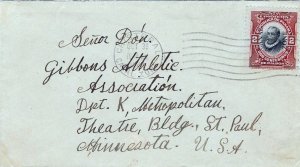 Señor Dón.
Gibbons Athletic
Association.
Dpt. K, Metropolitan,
Theatre, Bldg., St. Paul,
Minnesota. U.S.A.
2 2